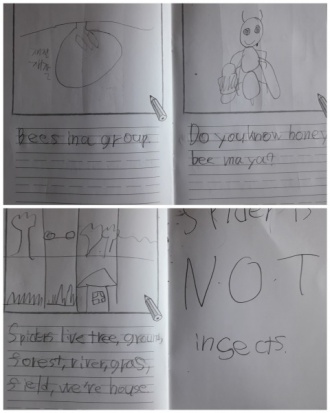 Bees in a group.
Do you know honey
bee maya?
Spiders live tree, ground,
forest, river, gras,
field, we're house
Spider is
N.O.T
insects.